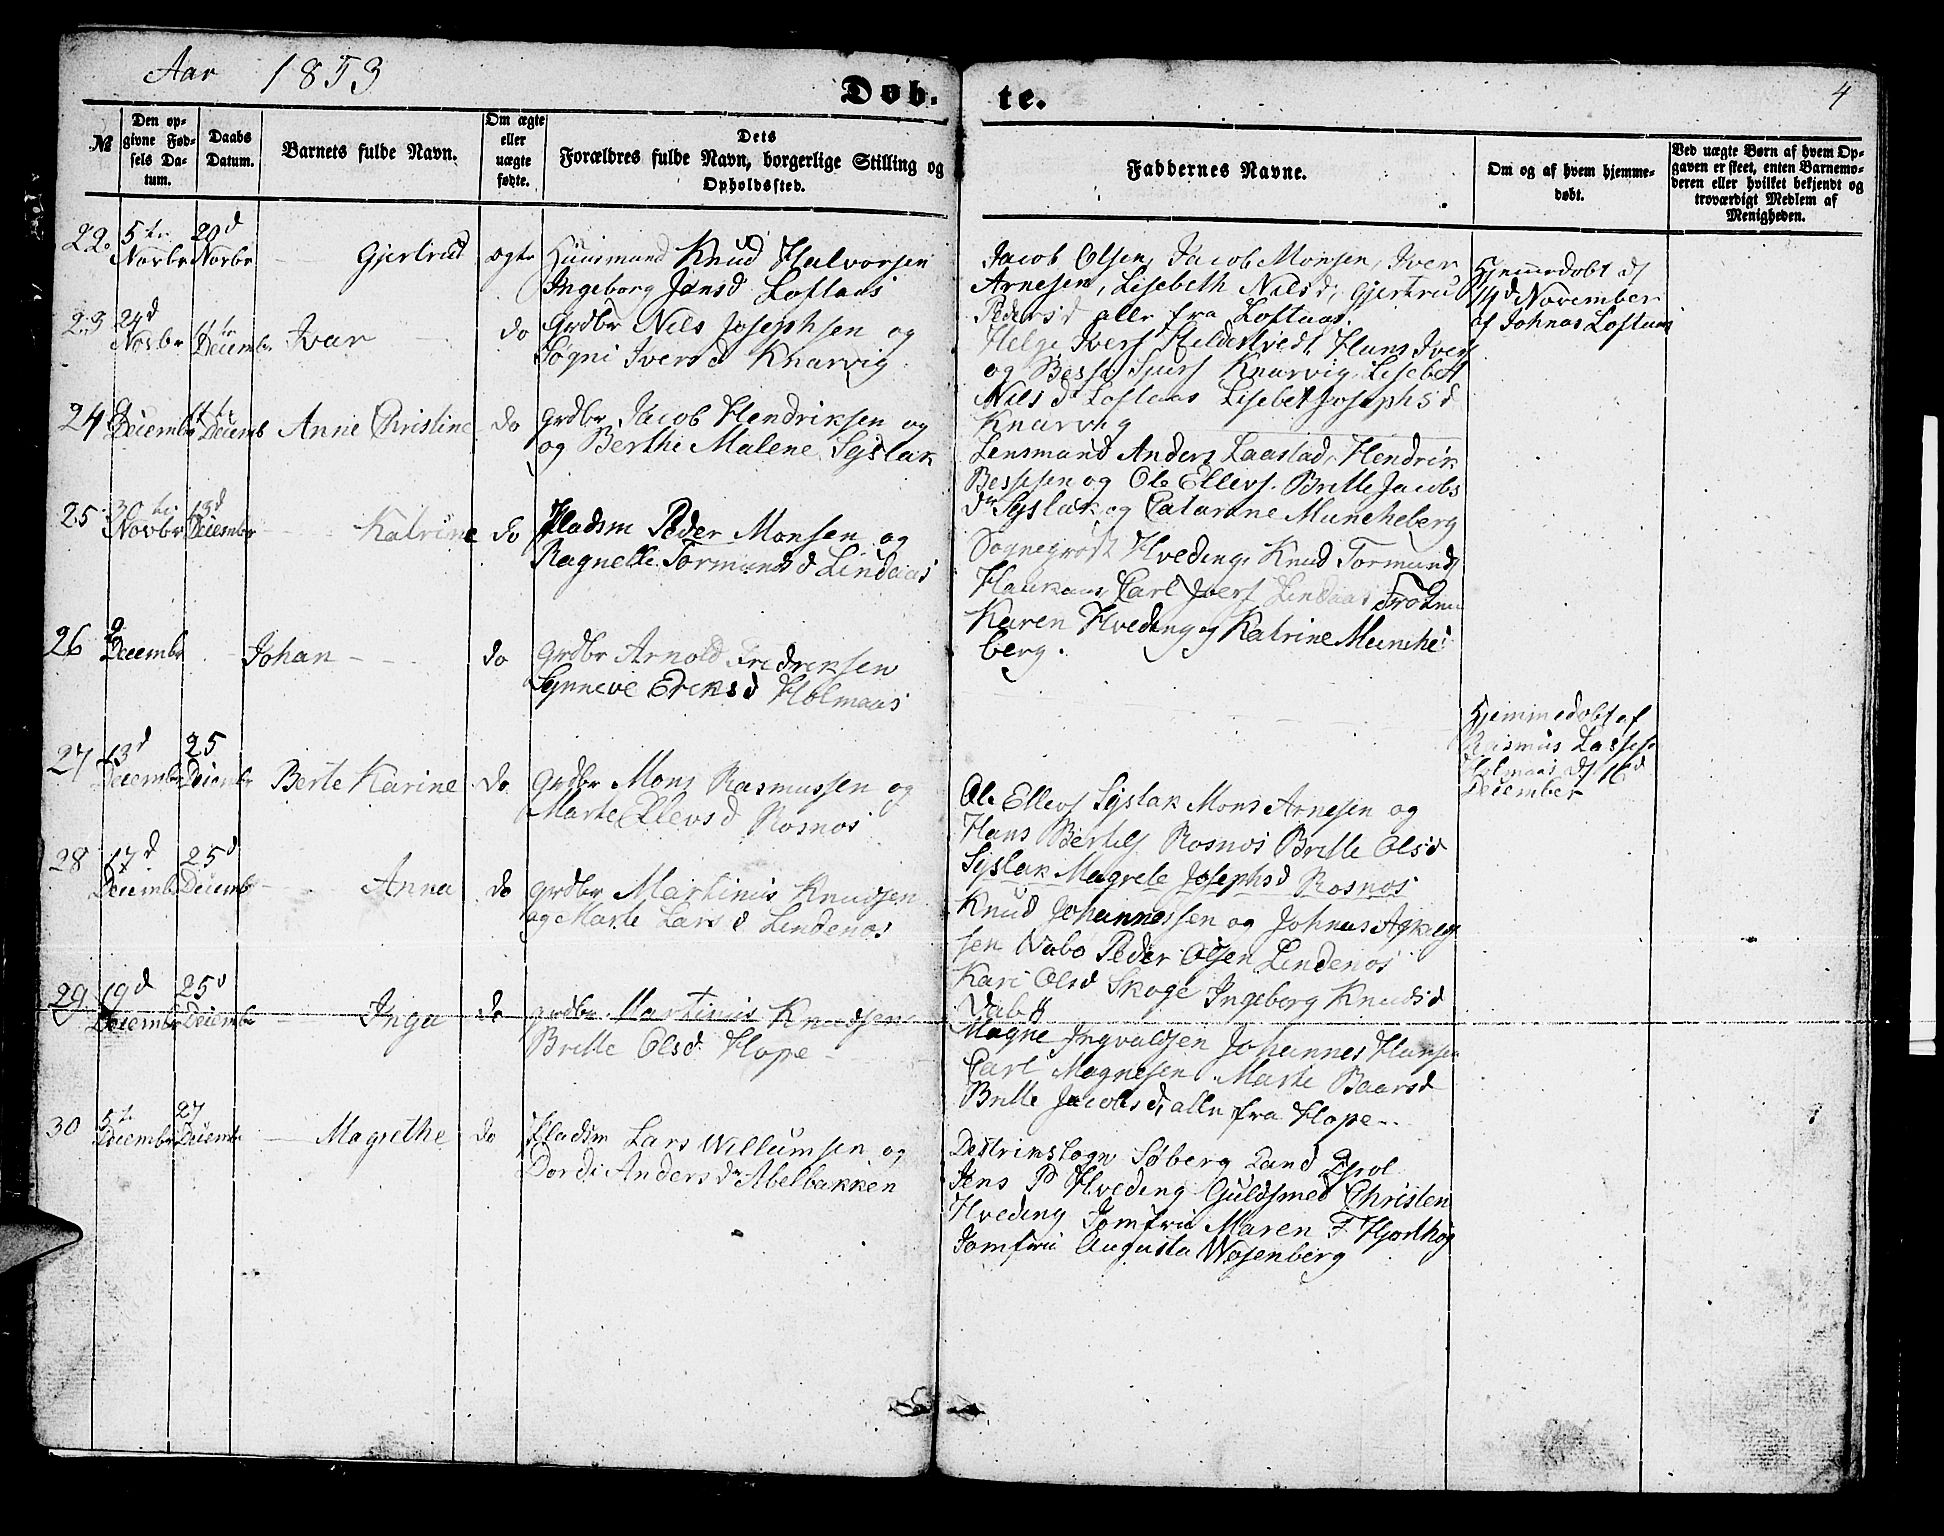 Aar 1853
Døb-
te.
4
№
Den op-
givne Fød-
sels Da-
tum.
Daabs
Datum.
Barnets fulde Navn.
Om ægte
eller
uægte
fødte.
Dets
Forældres fulde Navn, borgerlige Stilling og
Opholdssted.
Faddernes Navne.
Om og af hvem hjemme-
døbt.
Ved uægte Børn af hvem Op-
gaven er skeet, enten Barnemo-
deren eller hvilket bekjendt og
troværdigt Medlem af
Menigheden.
22. 5te 20d
Novbr Novbr Gjertrud ægte Huusmand Knud Halvorsen
Ingeborg Jansd Loftaas
Jacob Olsen, Jacob Monsen, Iver
Arnesen, Lisebeth Nilsd, Gjertrud
Pedersd alle fra Loftaas.
Hjemmedøbt d
14d November
af Johnas Loftaas
23 24d
Novbr Decembr Ivar do Grdbr Nils Josephsen og
Søgni Iversd Knarvig
Helge Ivers Hildestvedt, Hans Ivers
og Knarvig Lisebet
Nilsd Loftaas Lisebet Josephsd
Knarvig
24 Decembr Decemb Anne Christine do Grdbr Jacob Hendriksen og
og Berthe Malene Syslak
Lensmand Anders Laastad, Hendrik
Bessesen og Ole Ellevs. Britte Jacobs
dr Syslak og Catarine Muncheberg
25 30te 13d
Novbr Decembr Katrine do Pladsm Peder Monsen og
Ragnelle Tormundsd Lindaas
Sogneprest Hveding, Knud Tormunds
Haukaas, Carl Ivers Lindaas
Karen Hveding og Katrine Munche
berg.
26 9
Decembr Johan do Grdbr Arnold Fredriksen
Synneve Eriksd Holmaas
Hjemmedøbt af
Rasmus Lasses
Holmaas d 16d
December
27 13d 25
Decembr Decembr Berte Karine do Grdbr Mons Rasmussen og
Marte Ellevsd Rosnos
Ole Ellevs Syslak Mons Arnesen og
Hans Bertels Rosnos Britte Olsd
Syslak Magrete Josephsd Rosnos
28 17d 25d
Decemb Decemb Anna do Grdbr Martinus Knudsen
og Marte Larsd Lindenos
Knud Johannessen og Johnas
sen Nabo Peder Olsen Lindenos
Kari Olsd Skoge Ingeborg Knudsd
29 19d 25d
Decembr Decembr Inga do Grdbr Martinus Knudsen
Britte Olsd Hope
Magne Ingvaldsen Johannes Hansen
Carl Magnesen Marte Baarsd
Britte Jacobsd, alle fra Hope
30 5te 27
Decembr Decembr Magrethe do Pladsm Lars Willumsen og
Dordi Andersdr Abelbakken
Søberg
Jens P Hveding Guldsmed Christen
Hveding Jomfru Maren F. Hjorthøg
Jomfru Augusta Wosenberg